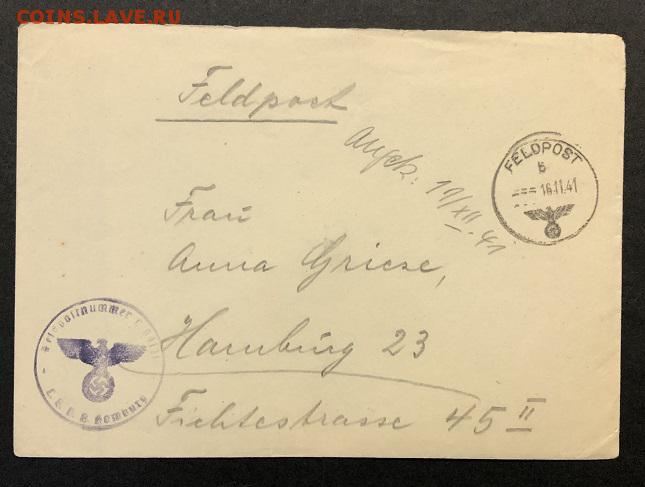 COINS.LAVE.RU
Feldpost
Angek: 17/XII.41
FELDPOST
b
16.11.41
Frau
Anna Griese,
Hamburg 23
Fichtestrasse 45 II
Feldpostnummer
Hamburg